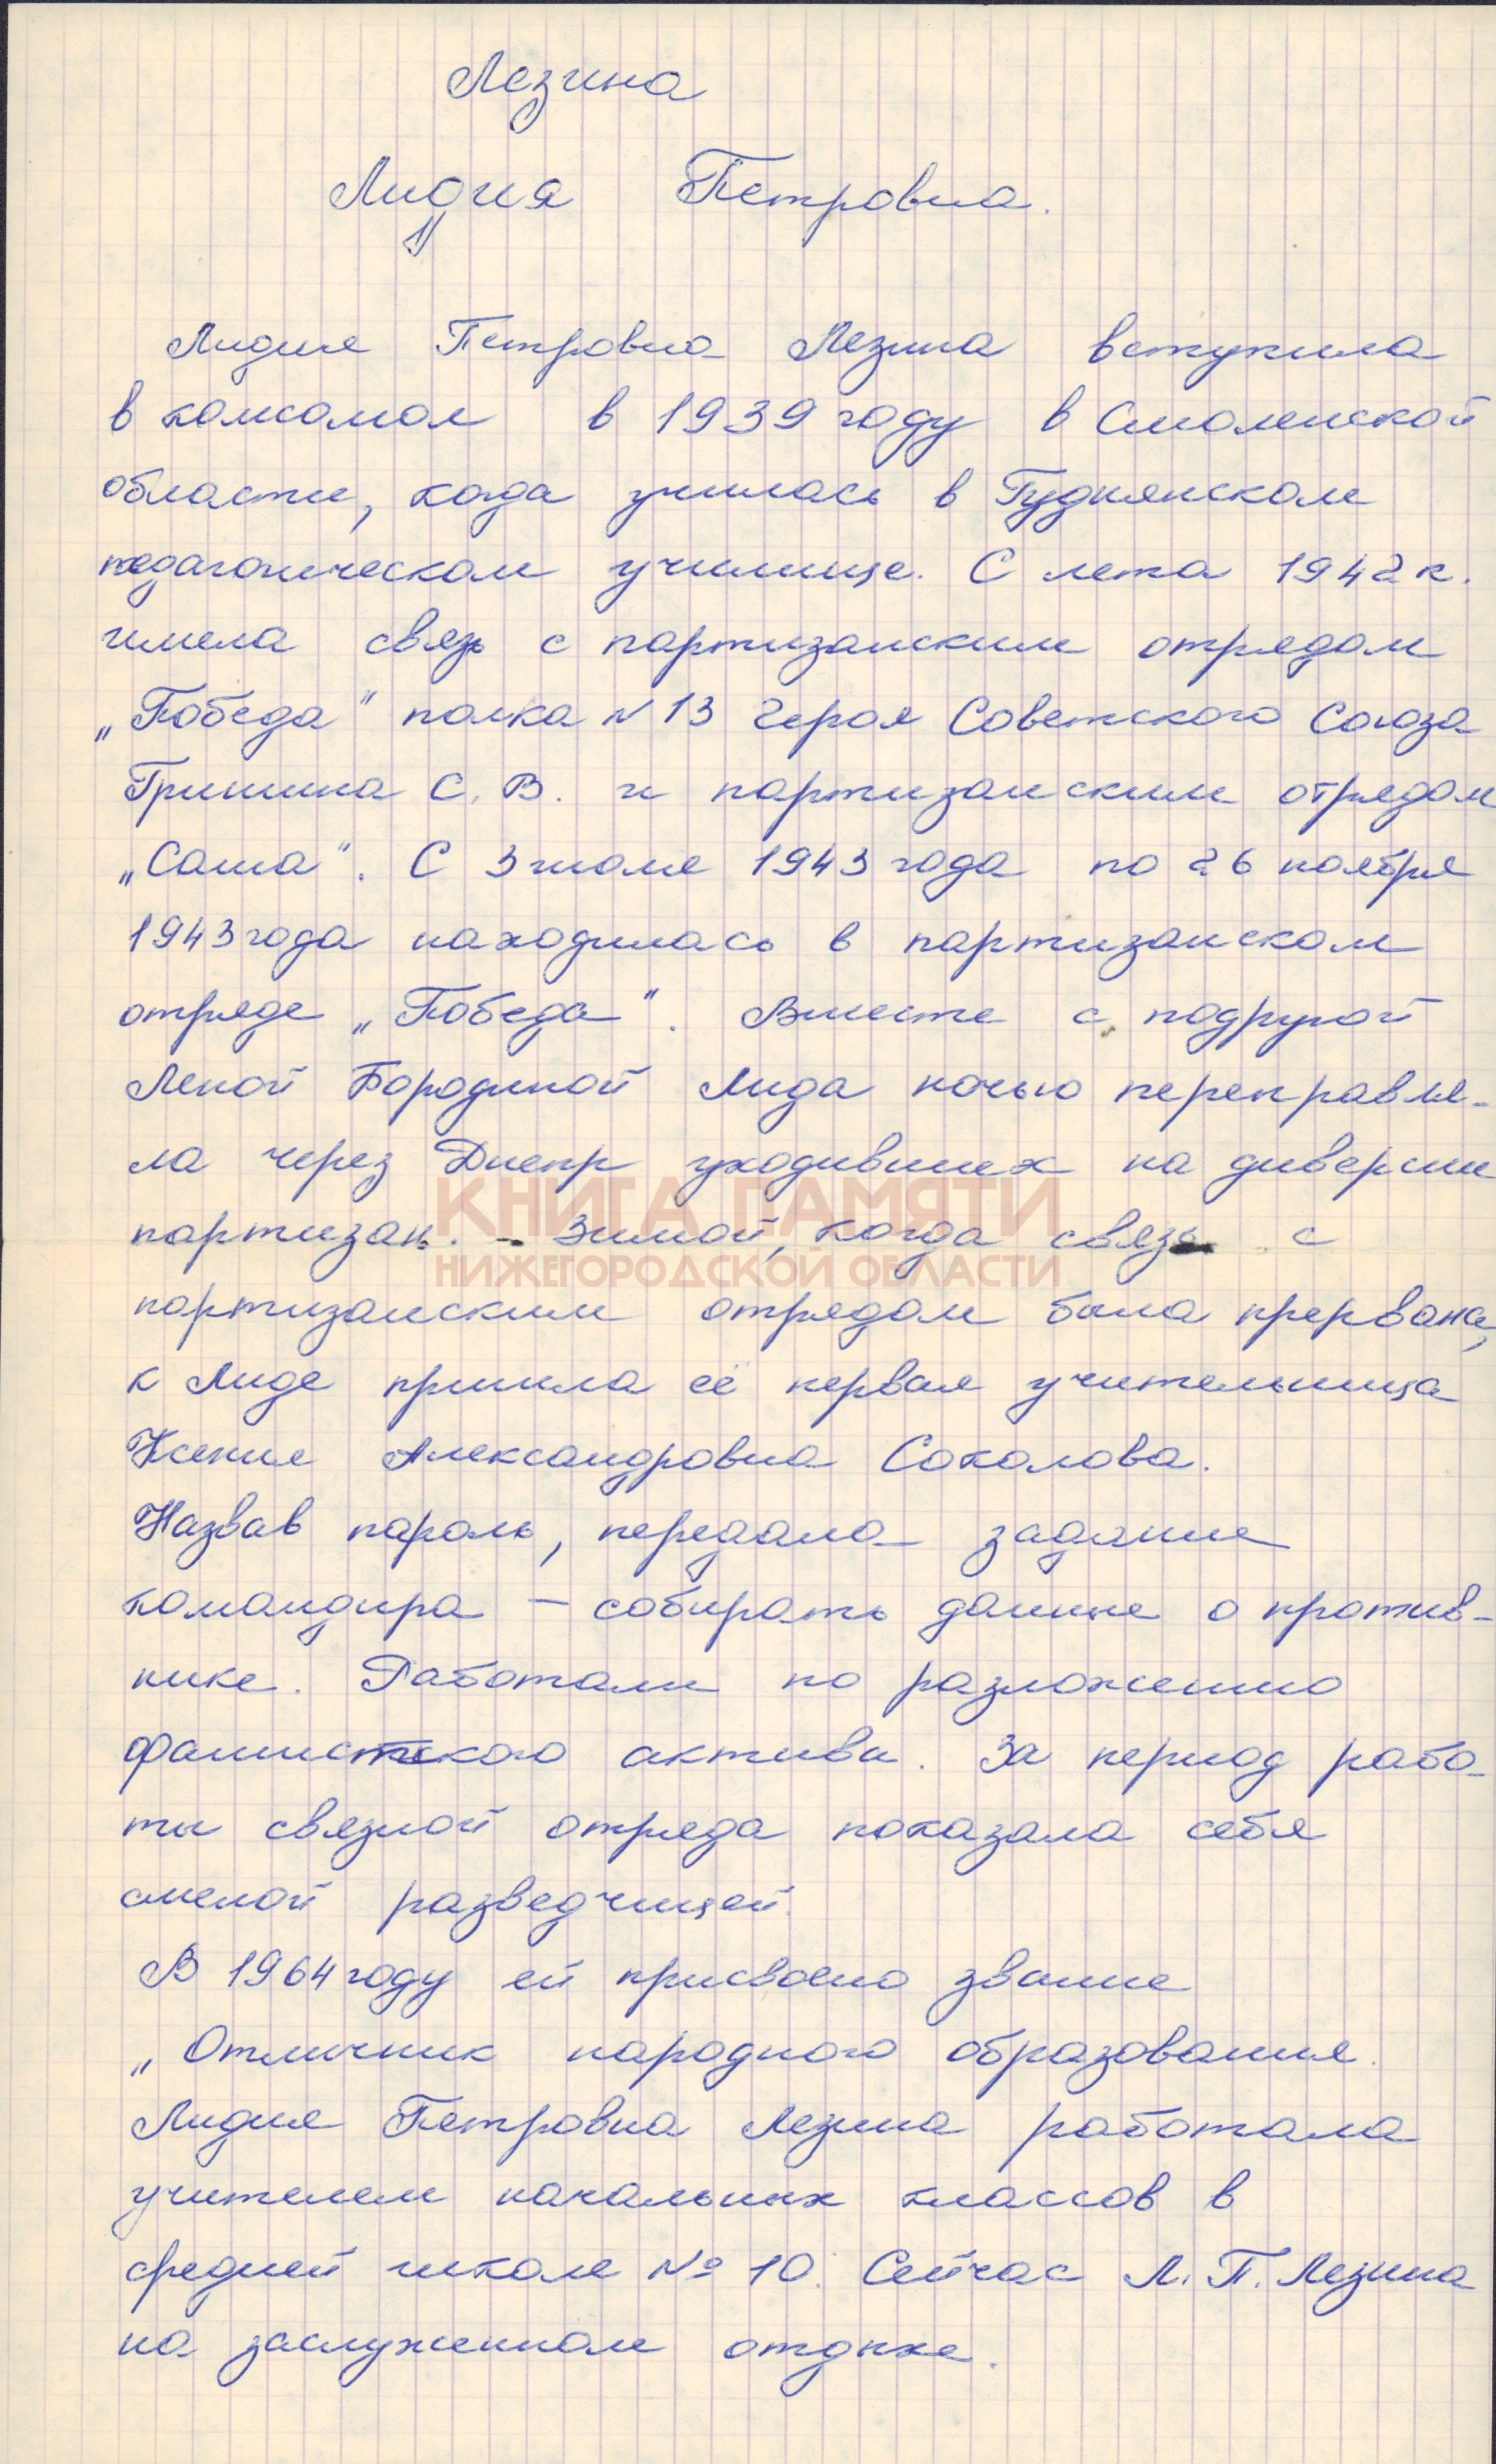 Лезина
Лидия Петровна.
Лидия Петровна Лезина вступила
в комсомол в 1939 году в Смоленской
области, когда училась в Гуднянском
педагогическом училище. С лета 1942 г.
имела связь с партизанским отрядом
„Победа" полка № 13 Героя Советского Союза
Гришина С. В. и партизанским отрядом
„Саша". С 3 июля 1943 года по 26 ноября
1943 года находилась в партизанском
отряде „Победа". Вместе с подругой
Леной Бородиной Лида ночью переправля-
ла через Днепр уходивших на диверсии
КНИГА ПАМЯТИ
партизан. - Зимой, когда связь с
НИЖЕГОРОДСКОЙ ОБЛАСТИ
партизанским отрядом была прервана,
к Лиде пришла её первая учительница
Ксения Александровна Соколова.
Назвав пароль, передала задание
командира – собирать данные о против-
нике. Работали по разложению
фашистского актива. За период рабо-
ты связной отряда показала себя
смелой разведчицей.
В 1964 году ей присвоено звание
„Отличник народного образования.
Лидия Петровна Лезина работала
учителем начальных классов в
средней школе № 10. Сейчас Л. П. Лезина
на заслуженном отдыхе.